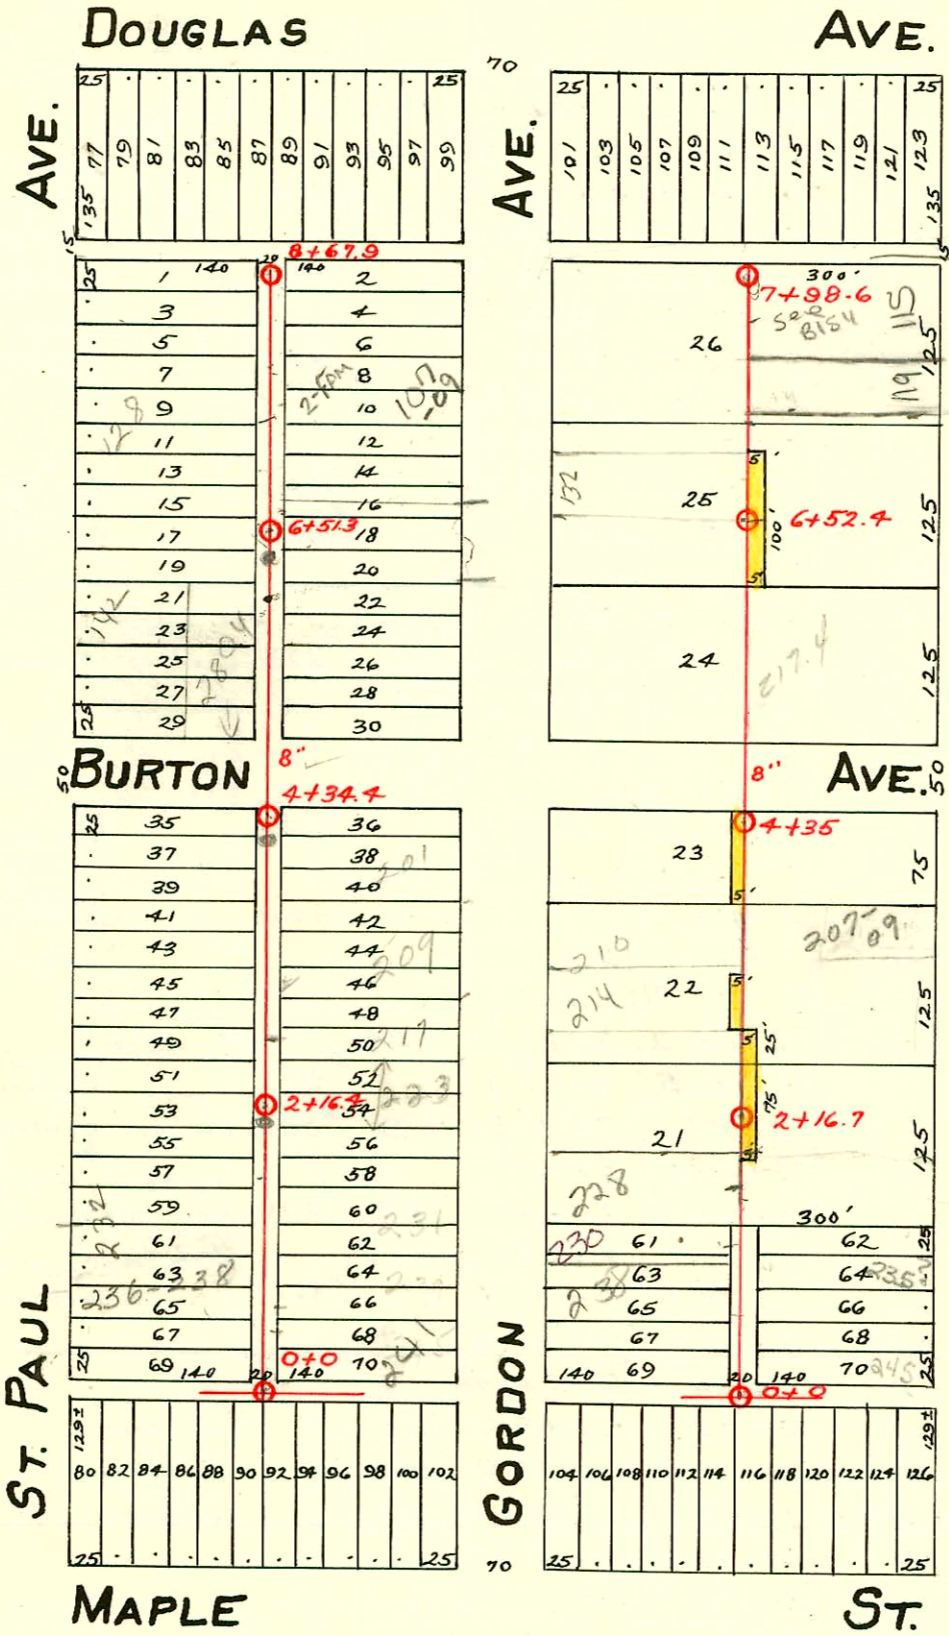 DOUGLAS AVE.
70
AVE.
AVE.
25 25
77 79 81 83 85 87 89 91 93 95 97 99
135
25 25
101 103 105 107 109 111 113 115 117 119 121 123
135
15
15
8+67.9
25 1 140 20 140 2
3 4
5 6
7 8
9 10
11 12
13 14
15 16
17 18
19 20
21 22
23 24
25 26
27 28
25 29 30
6+51.3
128
2-FAM
107
109
142
2804
300'
7+98.6
See
B154
115
26
125
119
132
5'
25
6+52.4
100'
125
5'
24
217.4
125
8"
8"
50 BURTON AVE. 50
4+34.4
25 35 36
37 38
39 40
41 42
43 44
45 46
47 48
49 50
51 52
53 54
55 56
57 58
59 60
61 62
63 64
65 66
67 68
25 69 140 20 140 70
2+16.4
0+0
201
209
217
223
231
232
236-238
241
4+35
23
75
5'
207-09
210
5'
22
214
125
5'
25'
75'
2+16.7
21
5'
125
228
300'
230 61 62 25
238 63 64 235
65 66
67 68
140 69 20 140 70 245 25
0+0
ST. PAUL
GORDON
129±
80 82 84 86 88 90 92 94 96 98 100 102
25 25
129±
104 106 108 110 112 114 116 118 120 122 124 126
25 25
70
MAPLE ST.